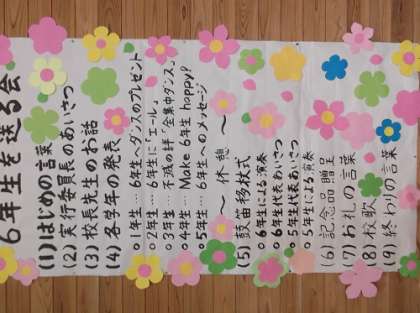 6年生を送る会
(1)はじめの言葉
(2)実行委員長のあいさつ
(3)校長先生のお話
(4)各学年の発表
○1年生…6年生へダンスのプレゼント
○2年生…6年生に「エール」
○3年生…不滅の絆「全集中ダンス」
○4年生…Make 6年生 happy?
○5年生…6年生へのメッセージ
～休憩～
(5)鼓笛移杖式
○6年生による演奏
○6年生代表あいさつ
○5年生代表あいさつ
5年生による演奏
(6)記念品贈呈
(7)お礼の言葉
(8)校歌
(9)終わりの言葉